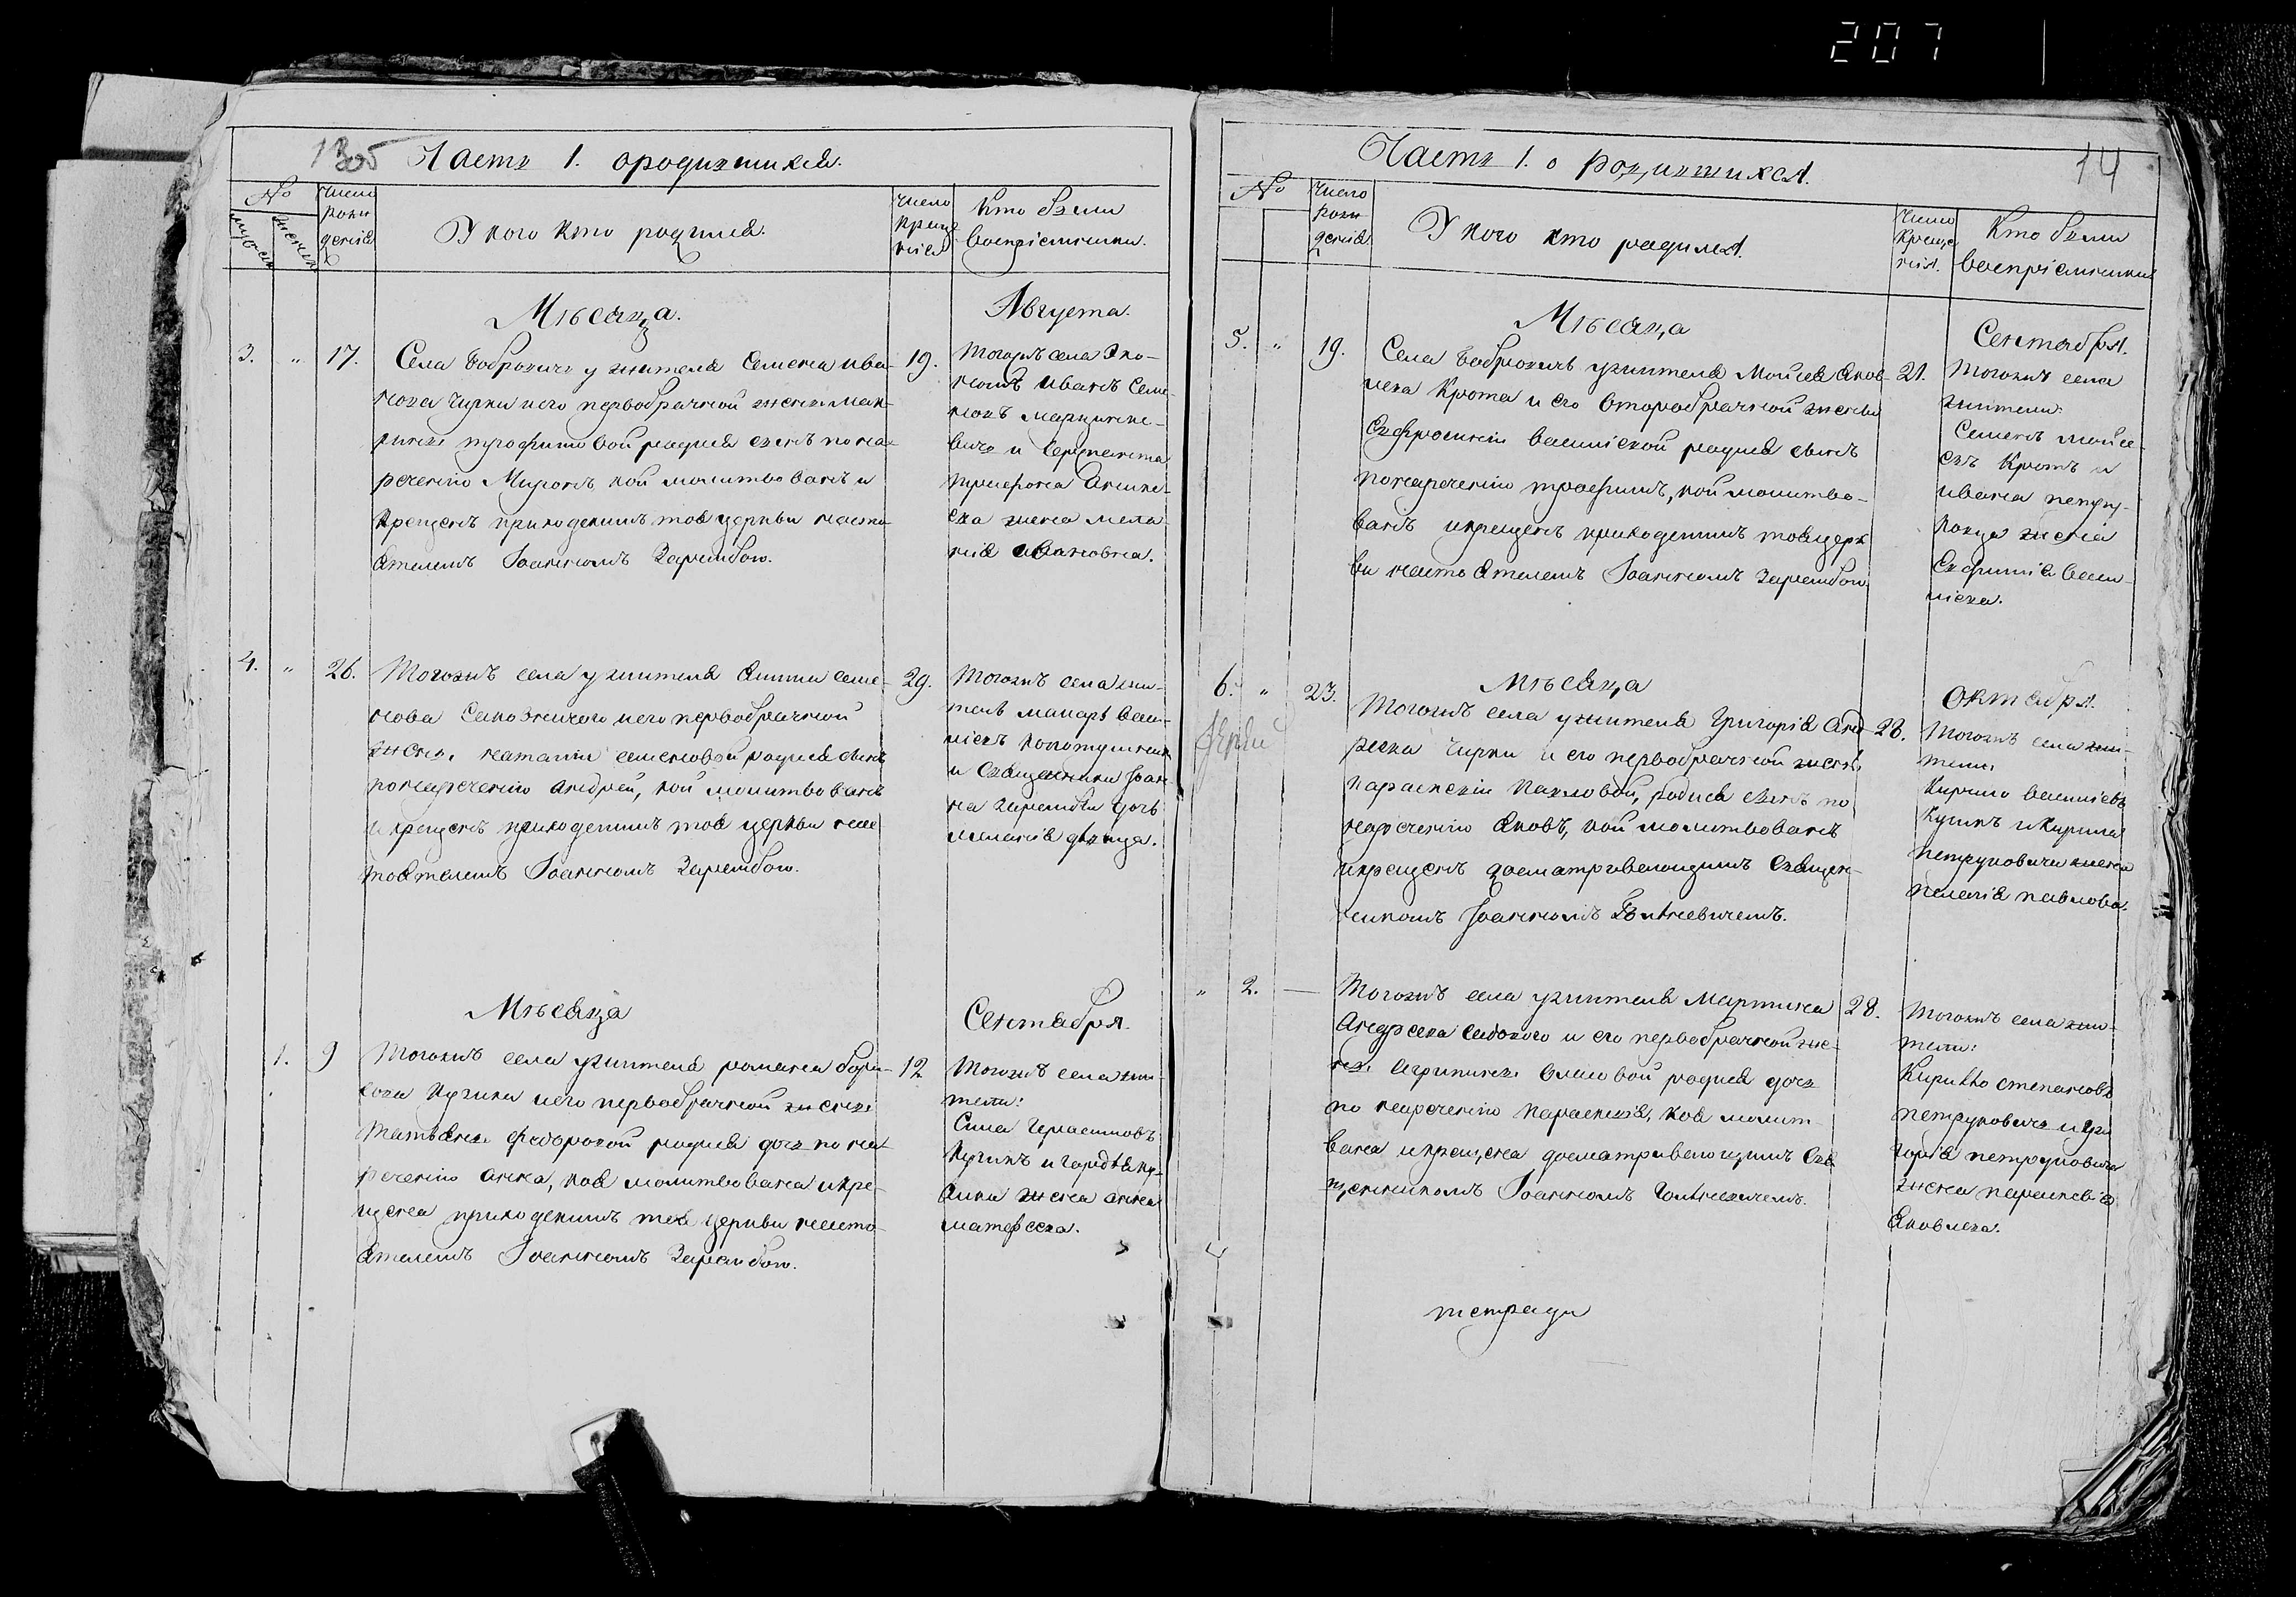 207
13об Часть 1. о родившихся.
№
мужеск
женск
Число
рожи
денія
У кого кто родился.
Число
Креще
нія
Кто были
Воспріемники.
Мѣсяца.
Августа.
3. „ 17.
Села Бобровичъ у жителя Семена Ива-
нова Чирки и его первобрачной жены Мак-
рины Трофимовой родися сынъ по на-
реченію Миронъ, кой молитвованъ и
Крещенъ приходскимъ тоя церкви насто-
ятелемъ Іоанномъ Зарембою.
19.
Тогожъ села Эко-
номъ Иванъ Семе-
новъ Марцинке-
вичъ и
Трифона
жена Мела-
нія Ивановна.
4. „ 26.
Тогожъ села у жителя Семе-
нова и его первобрачной
жены Наталіи Семеновой родися сынъ
по нареченію Андрей, кой молитвованъ
и крещенъ приходскимъ тоя церкви нас
тоятелемъ Іоанномъ Зарембою.
29.
Тогожъ села жи-
тель Макарѣ Васи-
ліевъ
и Священника Іоан
на Зарембы дочь
Меланія дѣвица.
Мѣсяца
Сентября.
1. 9
Тогожъ села у жителя Романа Бори-
сова Кулика и его первобрачной жены
Татьяны Федоровой родися дочь по на-
реченію Анна, коя молитвована и кре-
щена приходскимъ тоя церкви насто-
ятелемъ Іоанномъ Зарембою.
12
Тогожъ села жи-
тели:
Сила Герасимовъ
Куликъ и
жена Анна
Матфеева.
Часть 1. о родившихся.
14
№
Число
рожи
денія
У кого кто родился.
Число
Креще
нія.
Кто были
Воспріемники
Мѣсяца
Сентября.
5. „ 19.
Села Бобровичъ у жителя Мойсея Яков-
лева Крота и его второбрачной жены
Ефросиніи Василіевой родися сынъ
по нареченію Трофимъ, кой молитво-
ванъ и крещенъ приходскимъ тоя церк
ви настоятелемъ Іоанномъ Зарембою.
21.
Тогожъ села
жители:
Семенъ Мойсе-
евъ Кротъ и
Ивана Петру-
жена
Евфимія Васи-
ліева.
Мѣсяца
Октября.
6. „ 23.
Тогожъ села у жителя Григорія Анд
реева Чирки и его первобрачной жены
Параскевіи Павловой, родися сынъ по
нареченію Яковъ, кой молитвованъ
и крещенъ досматривающимъ Священ-
никомъ Іоанномъ
28.
Тогожъ села жи-
тели,
Кирило Василіевъ
Куликъ и Кирила
Петруковича жена
Пелагія Павлова.
„ 2. —
Тогожъ села у жителя Мартина
Андреева и его первобрачной же-
ны Агрипины родися дочь
по нареченію Параскевія, коя молит-
вана и крещена досматривающимъ Свя
щенникомъ Іоанномъ
28.
Тогожъ села жи-
тели:
Степановъ
Петруковичъ и Гри
горія Петруковича
жена Параскевія
Яковлева.
тетради